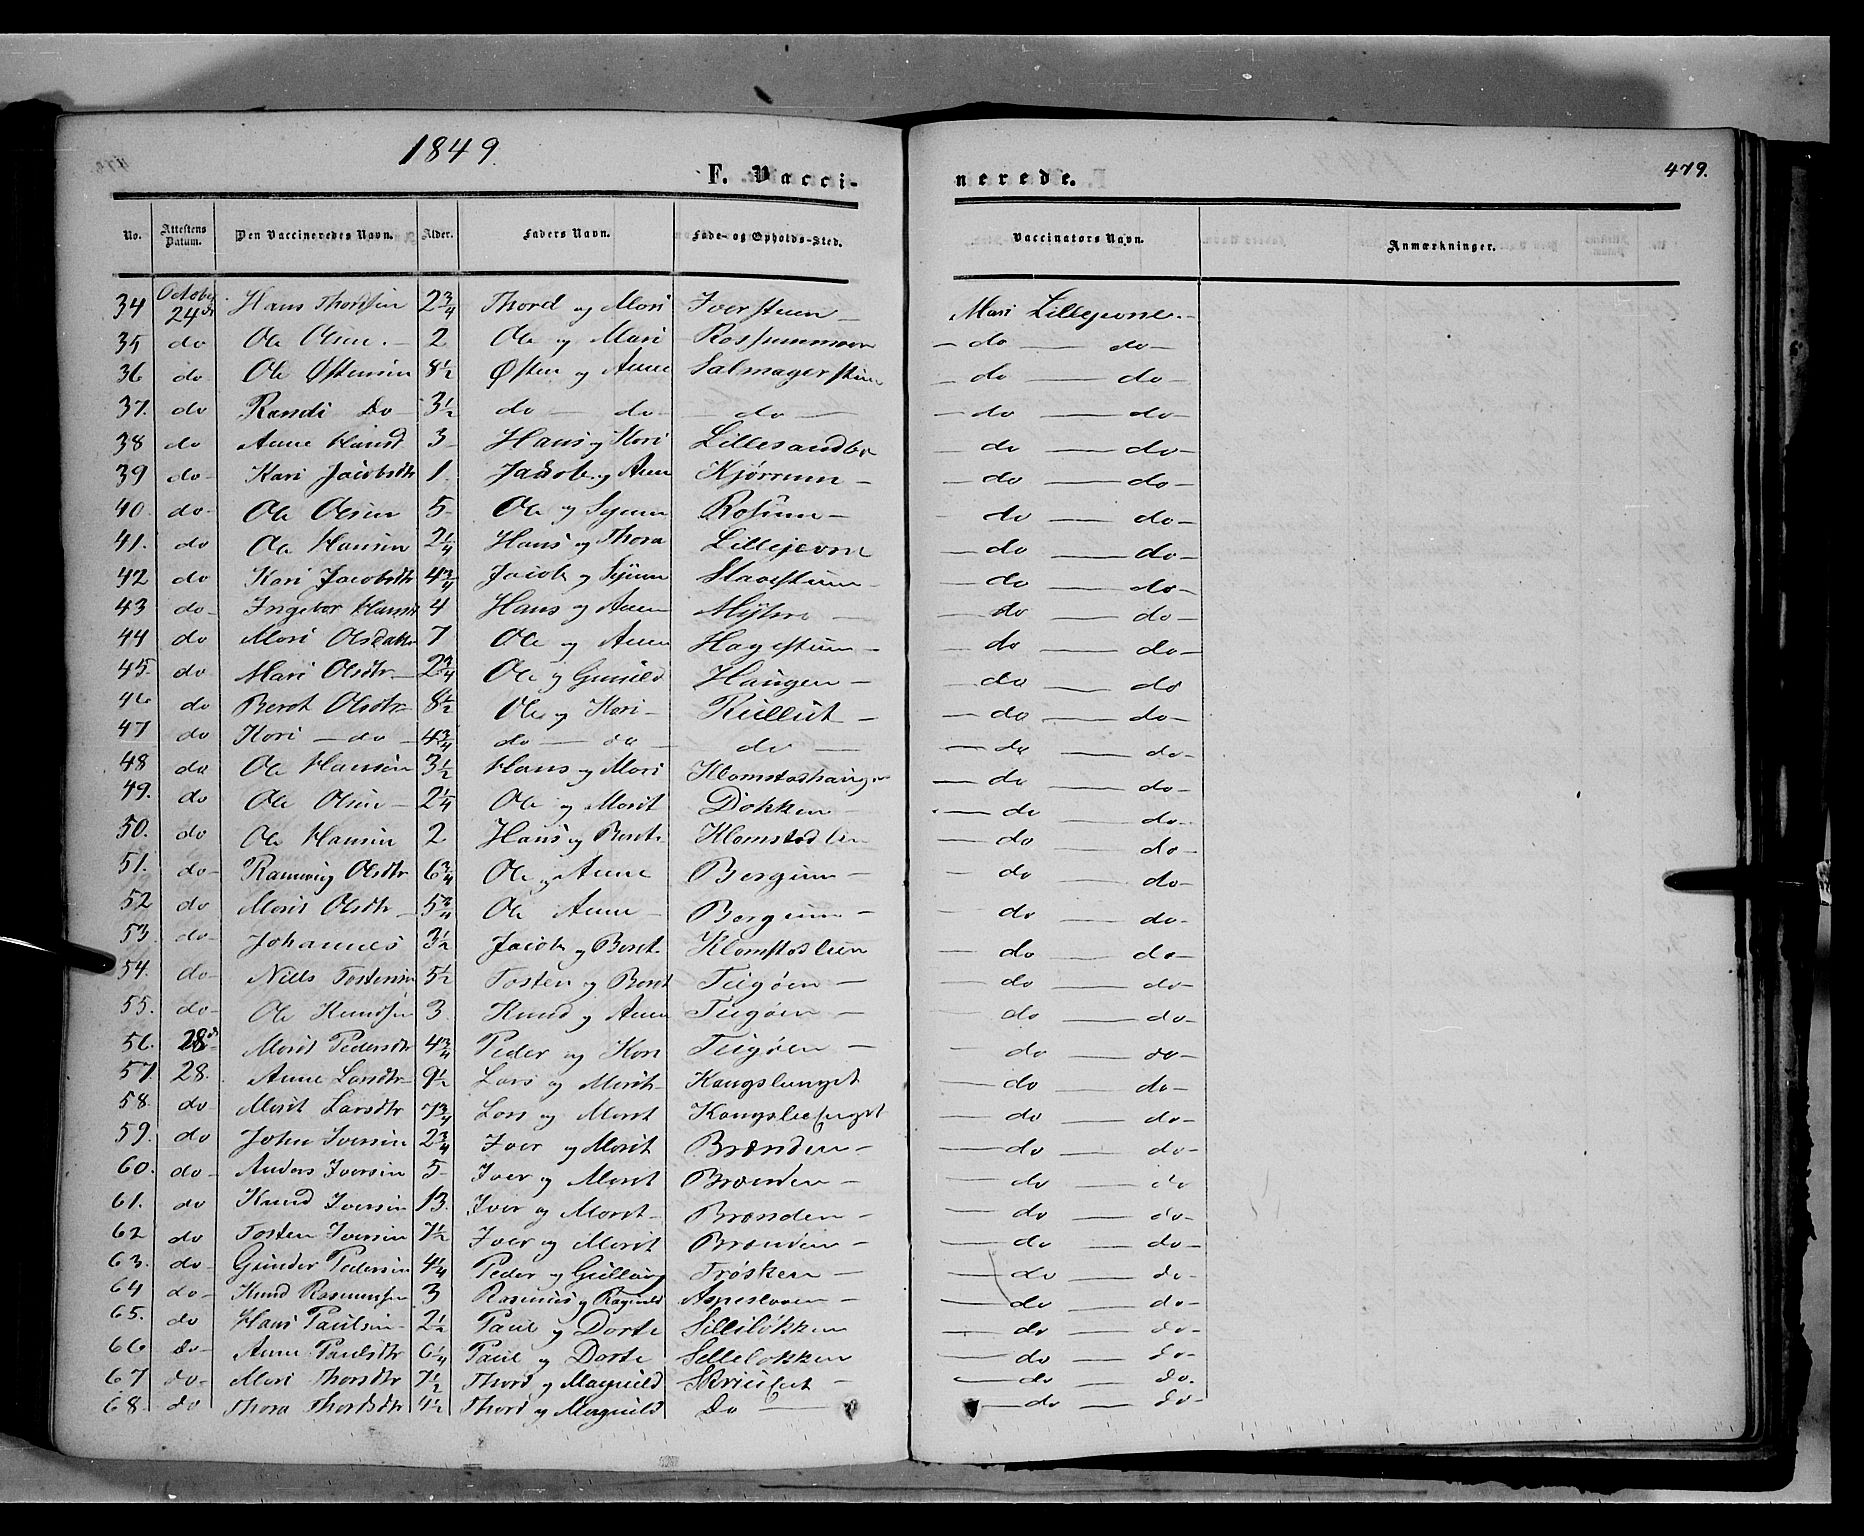 1849.
F. Vacci-
nerede.
479.
No. Attestens Datum. Den Vaccineredes Navn. Alder. Faders Navn. Føde- og Opholds-Sted. Vaccinators Navn. Anmærkninger.
34 October 24de Hans Thordsen 2 3/4 Thord og Mari Iverstuen — Mari Lillejevne. —
35 do Ole Olsen. — 2 Ole og Mari — do — do —
36 do Ole Østensen 8 1/2 Østen og Anne Salmagerstuen — do — do —
37. do Randi Do 3 1/2 do — do — do — — do — do —
38 do Anne Hansd 3 — Hans og Kari Lillesandbo — do — do —
39 do — Kari Jacobsdtr 1. Jacob og Anne Kjørrum — — do — do —
40. do — Ole Olsen 5 — Ole og Synne — do — do —
41. do Ole Hansen 2 1/4 Hans og Thora Lillejevne — do — do —
42 do Kari Jacobsdtr 4 3/4 Jacob og Synne — do — do —
43 do — Ingebor Hansd 4 Hans og Anne — do — do —
44 do Mari Olsdatter 7 Ole og Anne Hagestuen — — do — do —
45. do Mari Olsdtr — 2 3/4 Ole og Gunild Haugen — — do — do
46 do Berot Olsdtr — 8 1/2 Ole og Kari — — do — do —
47 do Kari — do — 4 3/4 do — do — do — — do — do —
48 do Ole Hansen 3 1/2 Hans og Mari Klomstadhaugen — do — do —
49. do Ole Olsen — 2 1/4 Ole og Marit Dokken — — do — do —
50. do Ole Hansen 2 Hans og Berete Klomstadlien — do — do —
51. do — Rannvig Olsdtr 6 3/4 Ole og Anne Bergum — — do — do —
52 do Marit Olsdtr — 5 3/4 Ole Anne — Bergum — — do — do —
53. do — Johannes 3 1/2 Jacob og Beret Klomstadlien — do — do —
54. do — Niels Tostensen 5 1/2 Tosten og Beret Teigøen — — do — do —
55. do — Ole Knudsen 3. Knud og Anne Teigøen — — do — do —
56. 28de Marit Pedersdtr 4 3/4 Peder og Kari Teigøen — — do — do —
57. 28. Anne Larsdtr — 9 1/2 Lars og Marit — Kongslunget — do — do —
58. do — Marit Larsdtr 7 3/4 Lars og Marit — do — do —
59. do John Iversen 2 3/4 Iver og Marit Brænden — — do — do —
60. do — Anders Iversen 5 — Iver og Marit Brænden — — do — do
61. do Knud Iversen 13. Iver og Marit — Brænden — — do — do —
62 do Tosten Iversen 7 1/2 Iver og Marit Brænden — — do — do —
63. do — Gunder Pedersen 4 1/4 Peder og Gullaug Trøsken — — do — do —
64 do — Knud Rasmusen 3 Rasmus og Ragnild — do — do —
65. do Hans Paulsen — 2 1/2 Paul og Dorte Silliløkken — do — do —
66 do — Anne Paulsdtr 6 1/4 Paul og Dorte Silleløkken — do — do —
67 do — Mari Thorsdtr 7 1/2 Thord og Magnild — do — do.
68. do Thora Thordsdtr 4 1/2 Thord og Magnild Do — — do — do —